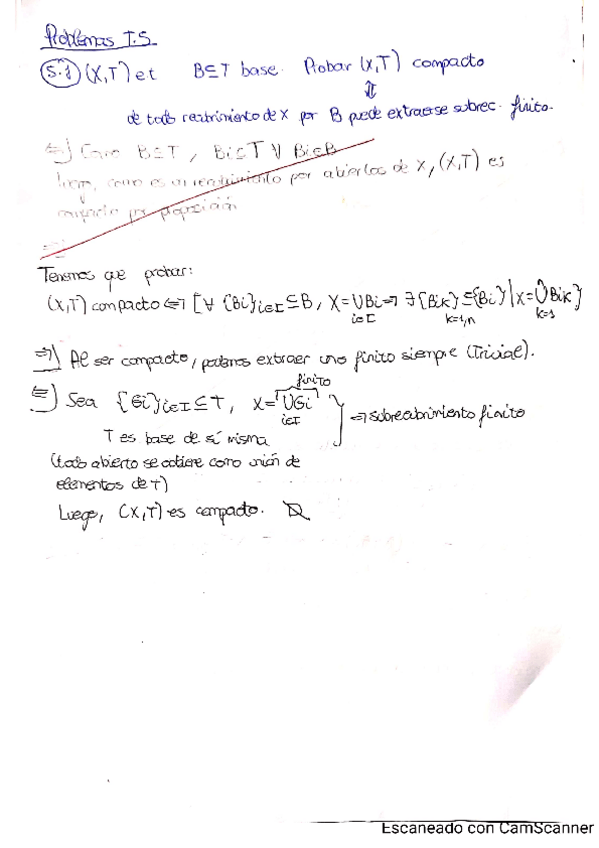 Problemas T.5.
5.1 (X,T) et B⊆T base. Probar (X,T) compacto
⇕
de todo recubrimiento de X por B puede extraerse subrec. finito.
⇐) Como B⊆T, Bi∈T ∀ Bi∈B
luego, como es un recubrimiento por abiertos de X, (X,T) es
compacto por proposición
Tenemos que probar:
(X,T) compacto ⇔ [∀ {Bi}i∈I ⊆ B, X = ∪Bi ⇒ ∃ {Bik} ⊆ {Bi} | X = ∪Bik}
i∈I k=1,n k=1
⇒) Al ser compacto, podemos extraer uno finito siempre (Trivial).
finito
⇐) Sea {Gi}i∈I ⊆ T, X = ∪Gi
i∈I
⇒ subrecubrimiento finito
T es base de sí misma
(todo abierto se obtiene como unión de
elementos de T)
Luego, (X,T) es compacto.
Escaneado con CamScanner